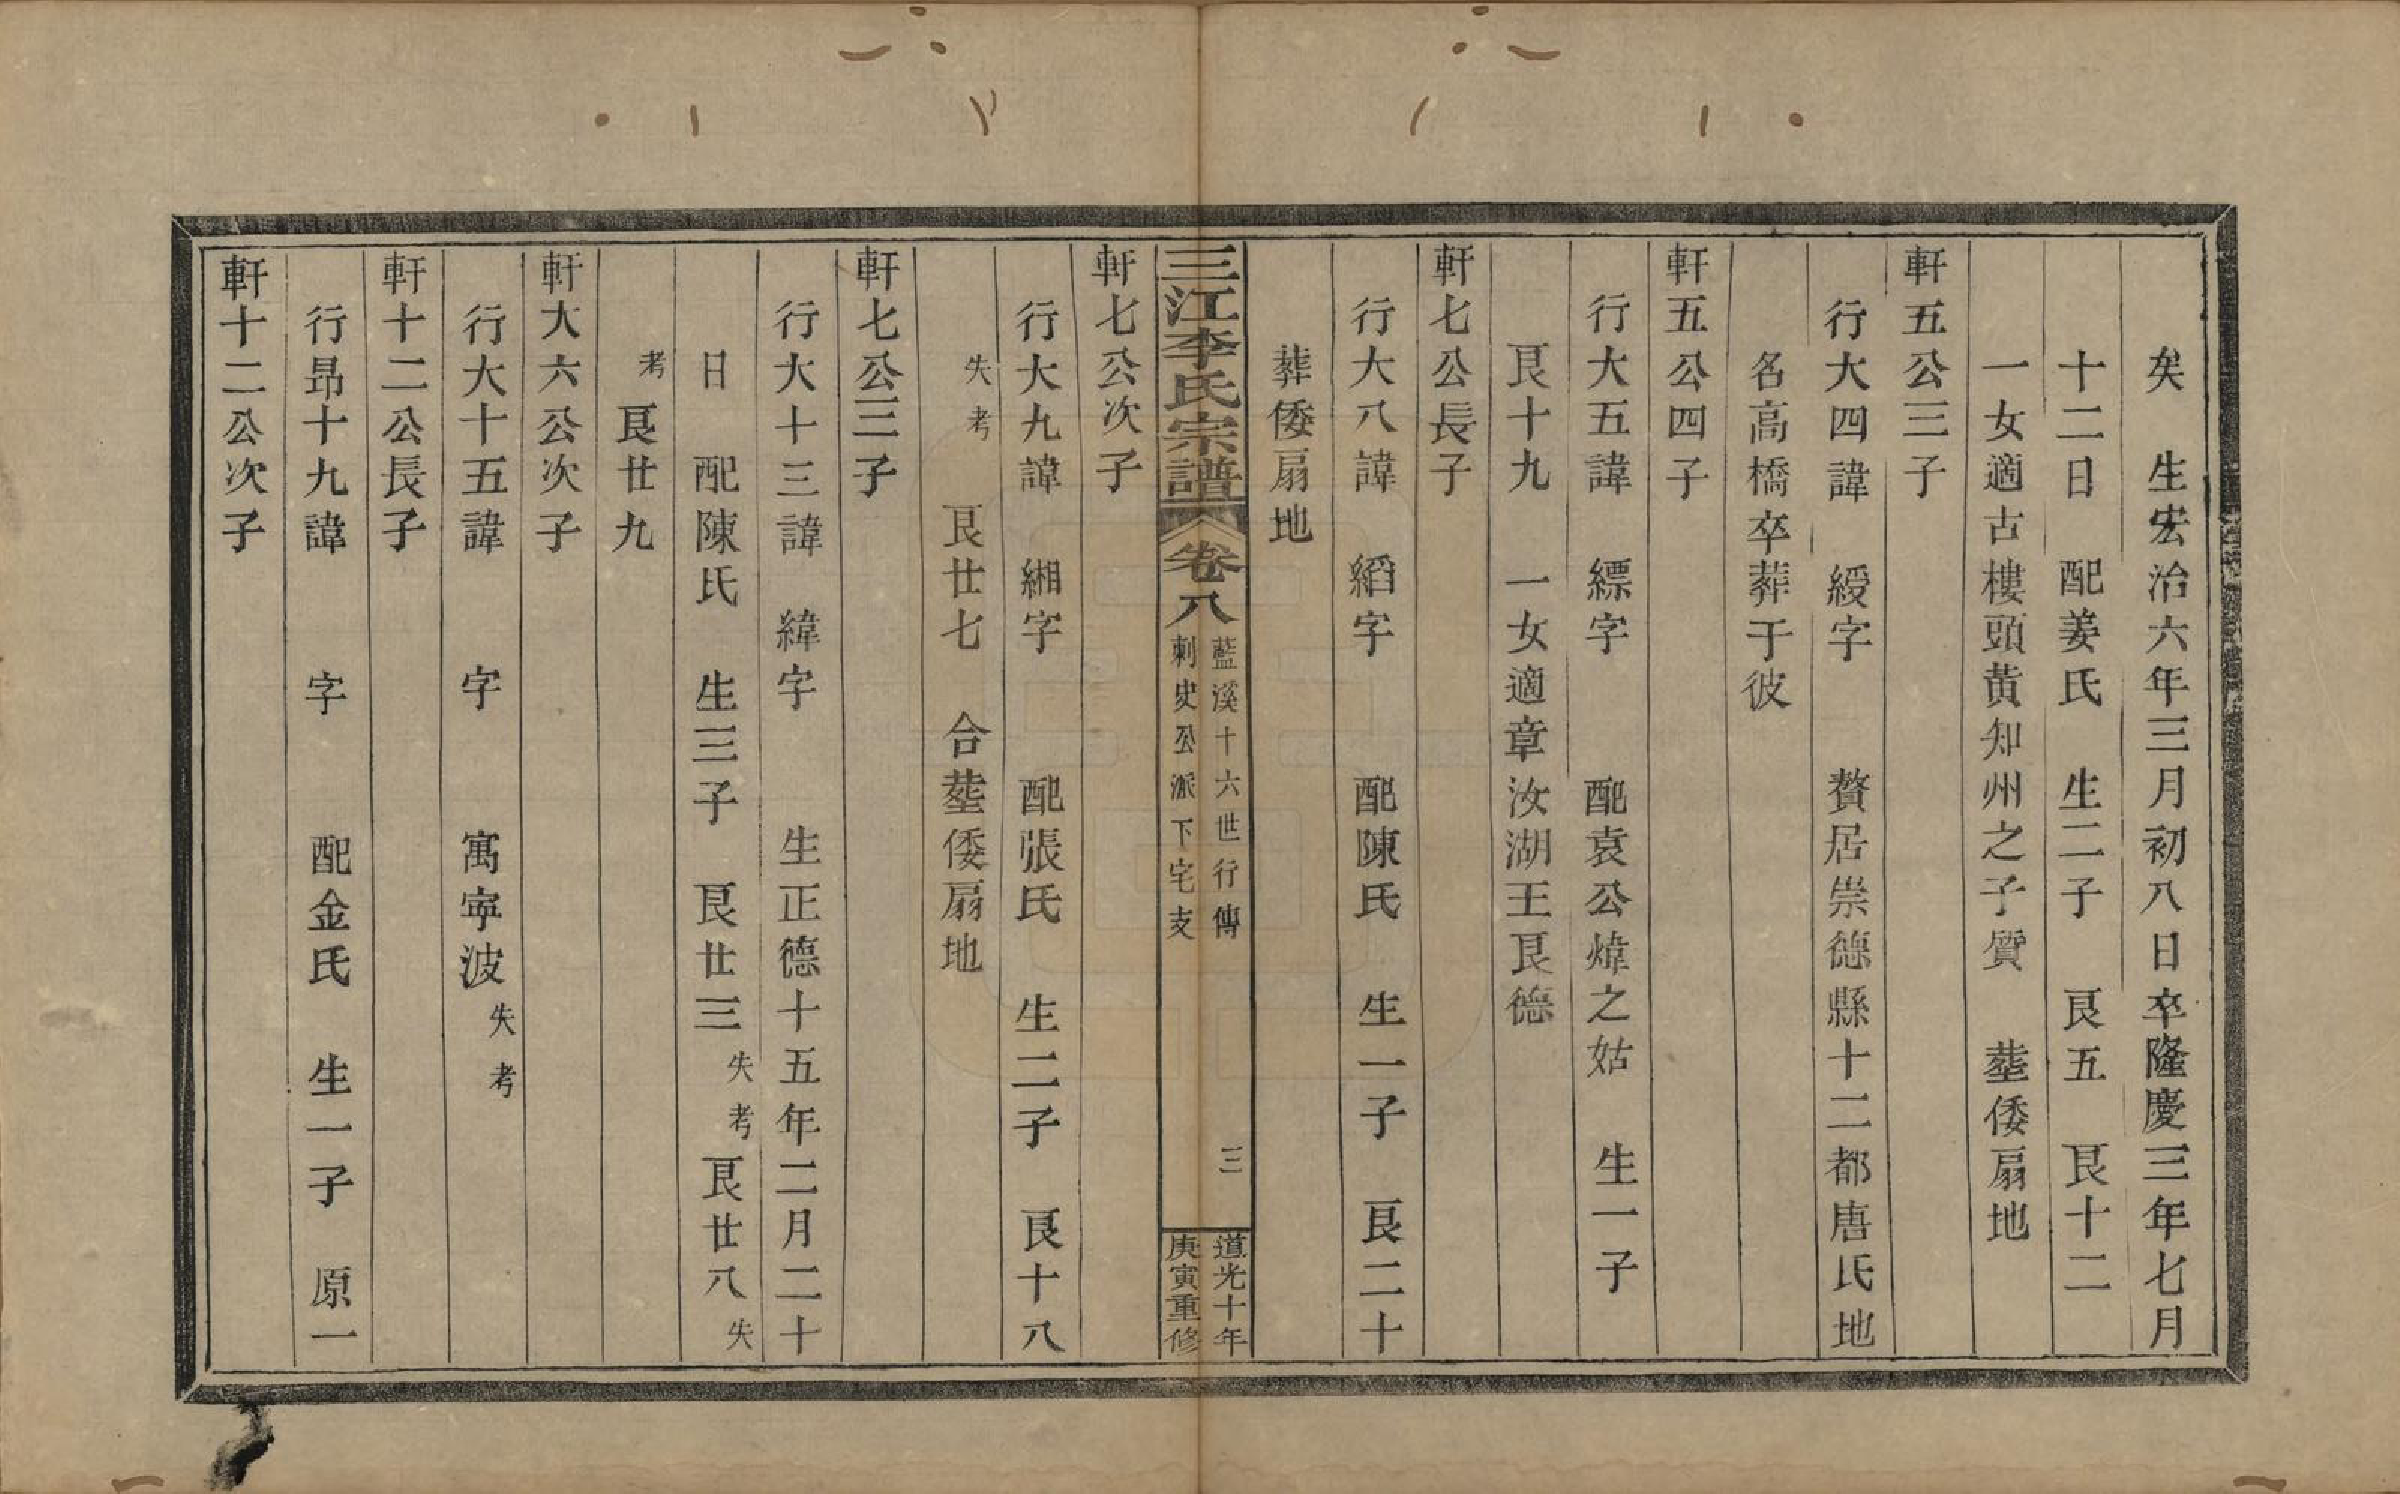 矣　生宏治六年三月初八日卒隆慶三年七月
十二日　配姜氏　生二子　艮五　艮十二
一女適古樓頭黃知州之子質　塟倭扇地
軒五公三子
行大四諱　綬字　贅居崇德縣十二都唐氏地
名高橋卒葬于彼
軒五公四子
行大五諱　縹字　配袁公煒之姑　生一子
艮十九　一女適章汝湖王艮德
軒七公長子
行大八諱　縚字　配陳氏　生一子　艮二十
葬倭扇地
三江李氏宗譜　卷八　藍溪十六世行傳　刺史公派下宅支　三　道光十年　庚寅重修
軒七公次子
行大九諱　緗字　配張氏　生二子　艮十八
失考　艮廿七　合塟倭扇地
軒七公三子
行大十三諱　緯字　生正德十五年二月二十
日　配陳氏　生三子　艮廿三失考艮廿八失
考艮廿九
軒大六公次子
行大十五諱　字　寓寧波失考
軒十二公長子
行昂十九諱　字　配金氏　生一子　原一
軒十二公次子